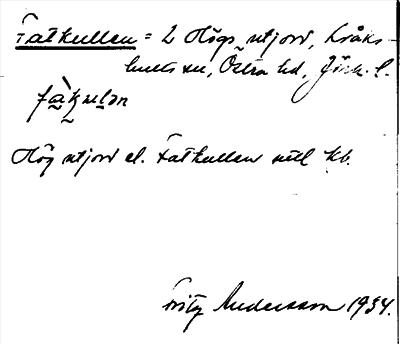 Fatkullen = L Högs utjord, Kråks-
hults sn, Östra hd, Jönk. l.
fàkulən
Hög utjord el. Fatkullen utl kb.
Fritz Andersson 1934.